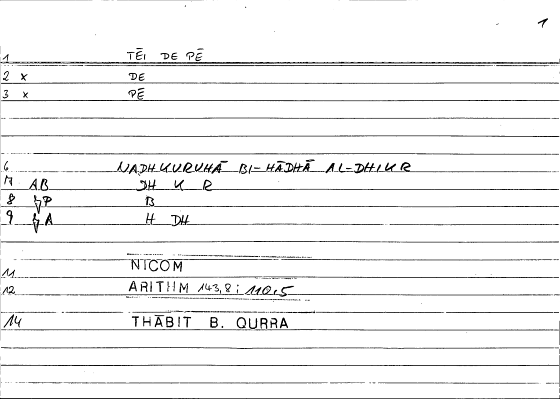 1
1 TĒI DE PĒ
2 x DE
3 x PĒ
6 NADHKURUHĀ BI-HĀDHĀ AL-DHIKR
7 AB DH K R
8 P B
9 A H DH
11 NICOM
12 ARITHM 143,8; 110,5
14 THĀBIT B. QURRA